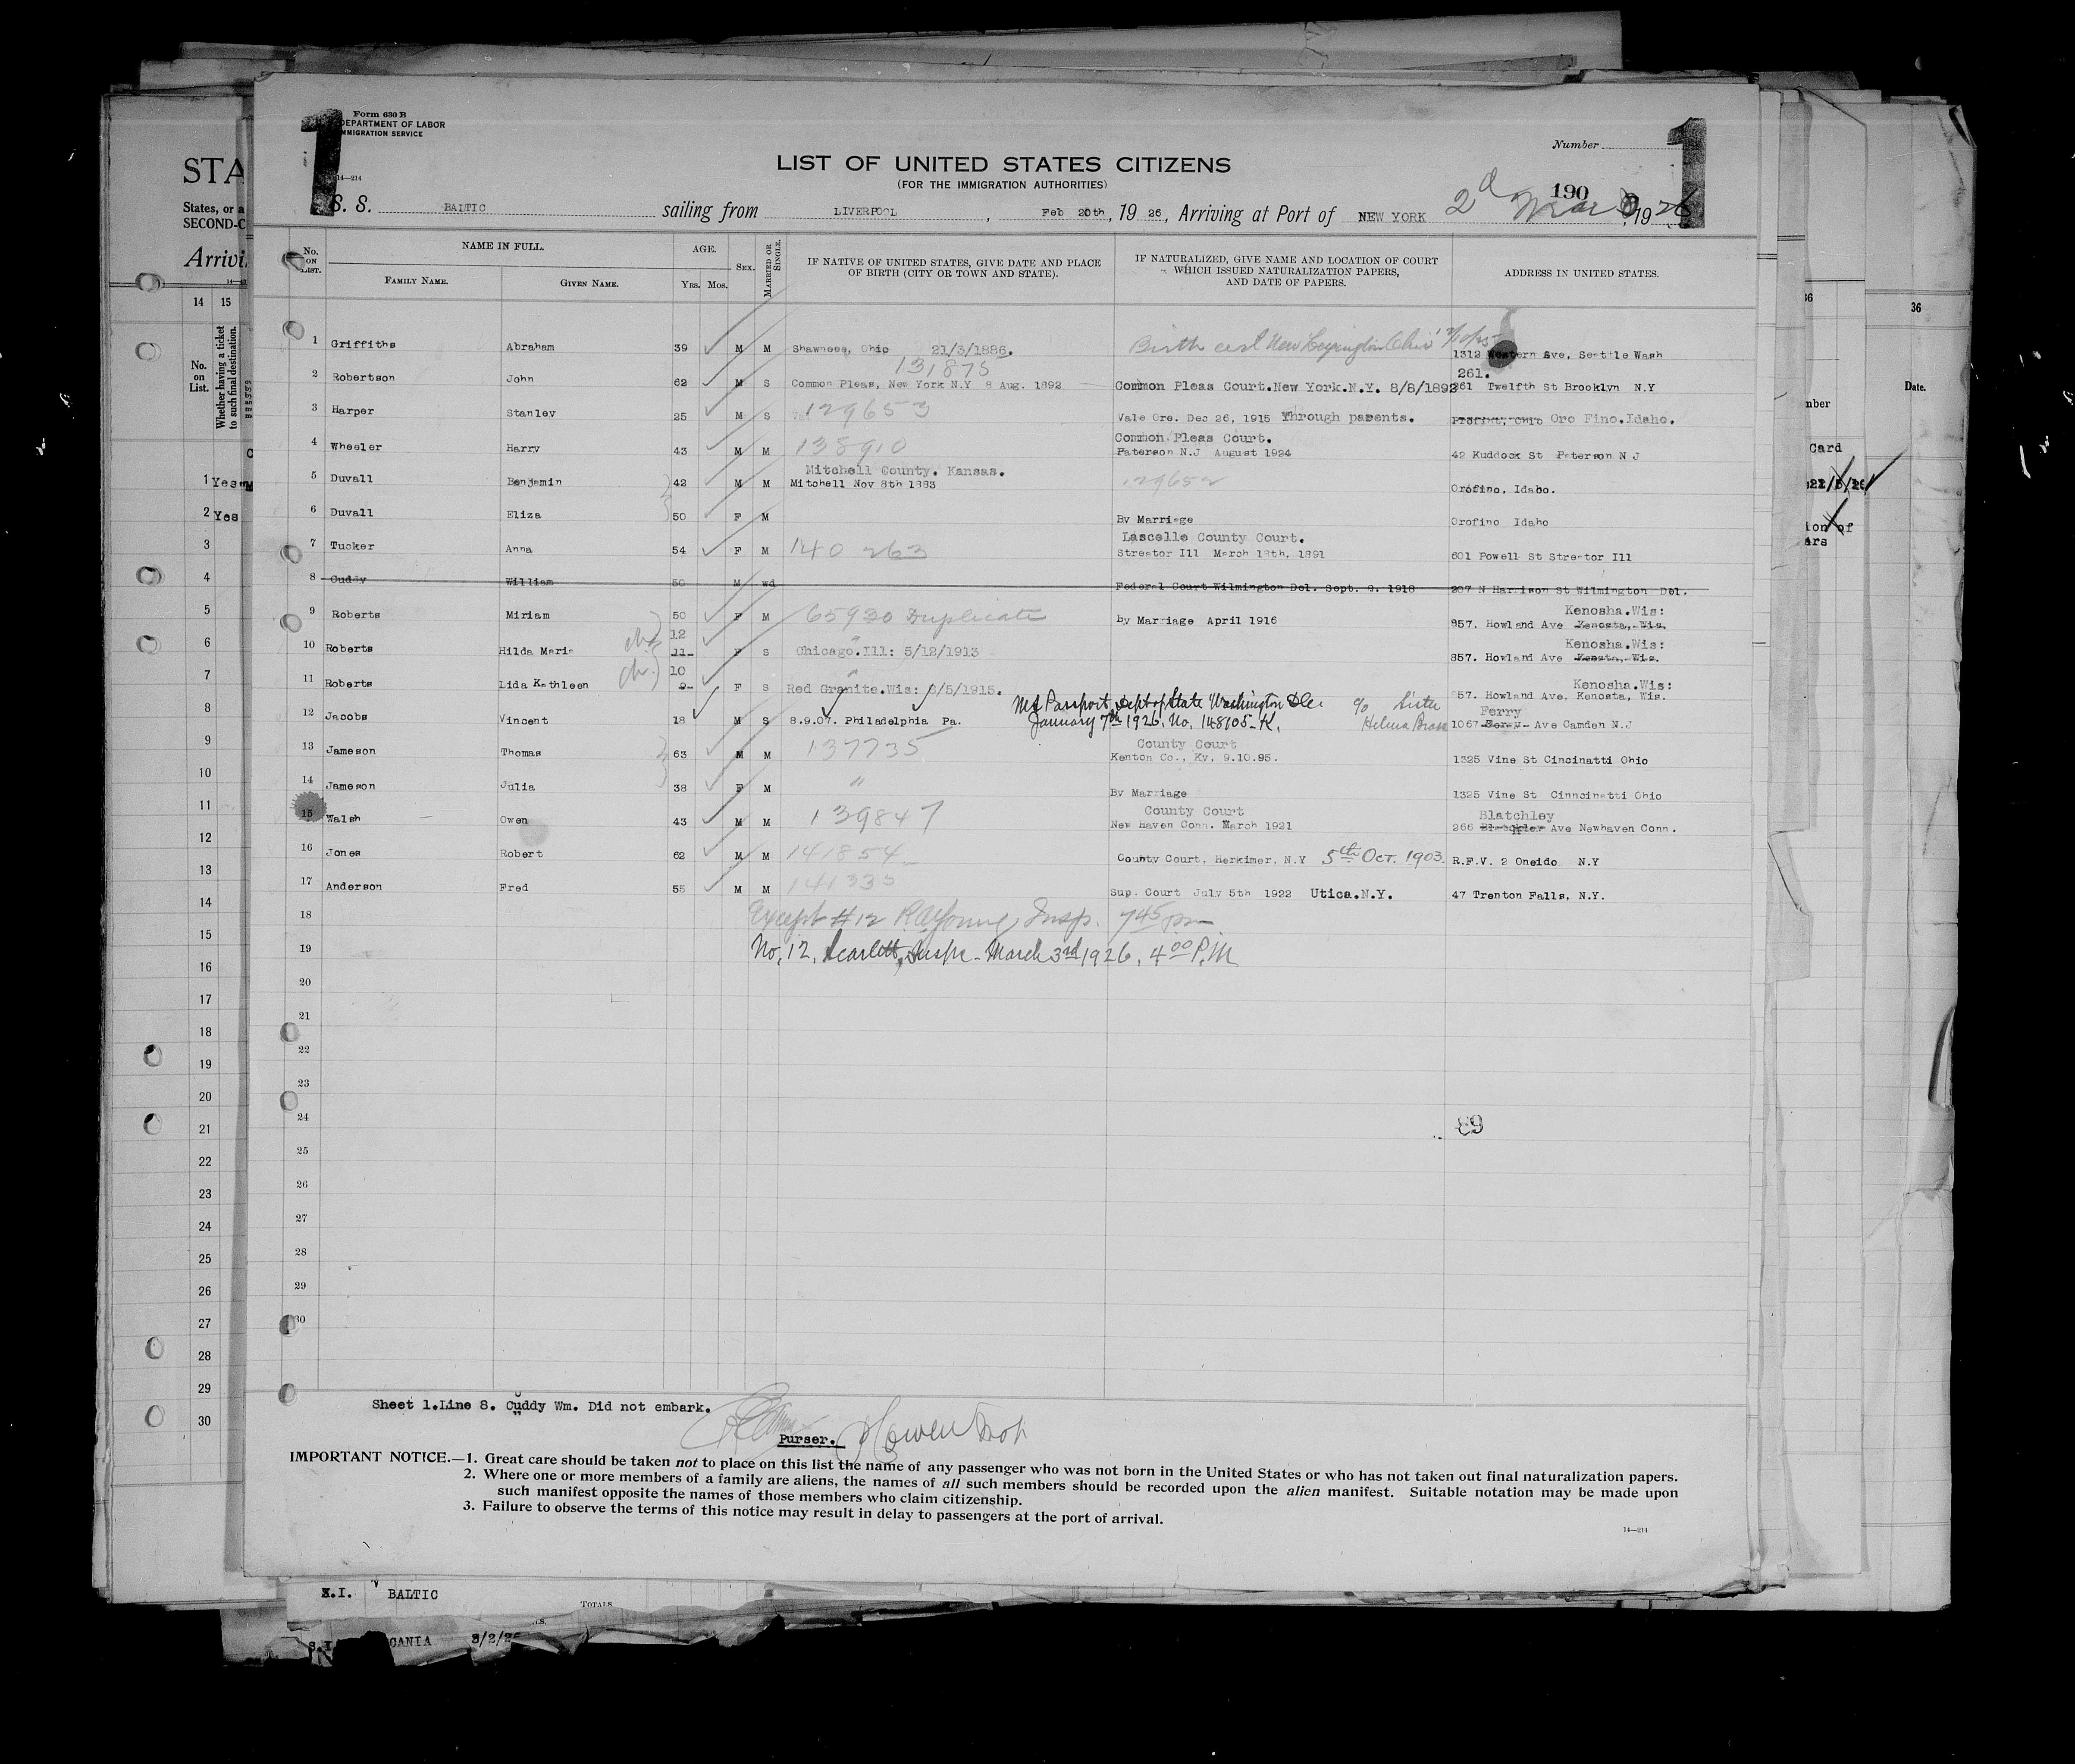 Form 630 B
DEPARTMENT OF LABOR
IMMIGRATION SERVICE
14—214
1
1
Number
LIST OF UNITED STATES CITIZENS
(FOR THE IMMIGRATION AUTHORITIES)
190
S. S. BALTIC sailing from LIVERPOOL, Feb 20th, 19 26, Arriving at Port of NEW YORK 2d Mar, 1926
No. ON LIST. NAME IN FULL. AGE. SEX. MARRIED OR SINGLE. IF NATIVE OF UNITED STATES, GIVE DATE AND PLACE OF BIRTH (CITY OR TOWN AND STATE). IF NATURALIZED, GIVE NAME AND LOCATION OF COURT WHICH ISSUED NATURALIZATION PAPERS, AND DATE OF PAPERS. ADDRESS IN UNITED STATES.
FAMILY NAME. GIVEN NAME. YRS. MOS.
1 Griffiths Abraham 39 M M Shawneee, Ohio 21/3/1886. Birth cert New Lexington Ohio 1312 Western Ave, Seattle Wash
131875 261.
2 Robertson John 62 M S Common Pleas, New York N.Y 8 Aug. 1892 Common Pleas Court.New York.N.Y. 8/8/1892 261 Twelfth St Brooklyn N.Y
3 Harper Stanley 25 M S 129653 Vale Ore. Dec 26, 1915 Through parents. Oro Fino.Idaho.
Common Pleas Court.
4 Wheeler Harry 43 M M 138910 Paterson N.J August 1924 42 Kuddock St Paterson N J
Mitchell County. Kansas.
5 Duvall Benjamin 42 M M Mitchell Nov 8th 1883 129652 Orofino, Idaho.
6 Duvall Eliza 50 F M By Marriage Orofino Idaho
Lascelle County Court.
7 Tucker Anna 54 F M 140 263 Streator Ill March 18th, 1891 601 Powell St Streator Ill
8 Cuddy William 50 M wd Federal Court Wilmington Del. Sept. 9. 1918 207 N Harrison St Wilmington Del.
Kenosha.Wis:
9 Roberts Miriam 50 F M 65930 Duplicate By Marriage April 1916 857. Howland Ave Kenosta, Wis.
12 Kenosha.Wis:
10 Roberts Hilda Marie ch. 11 F S " Chicago.Ill: 5/12/1913 857. Howland Ave Kenosta, Wis.
10 Kenosha.Wis:
11 Roberts Lida Kathleen ch. 9 F S " Red Granite.Wis: 8/5/1915. 857. Howland Ave, Kenosta, Wis.
Passport, Dept of State Washington D.C. c/o Sister
Ferry
12 Jacobs Vincent 18 M S 8.9.07. Philadelphia Pa. January 7th 1926, No. 148105-K. Helma 1067 Ave Camden N.J
County Court
13 Jameson Thomas 63 M M 137735 Kenton Co., Ky, 9.10.95. 1325 Vine St Cincinatti Ohio
14 Jameson Julia 38 F M " By Marriage 1325 Vine St Cinncinatti Ohio
County Court Blatchley
15 Walsh Owen 43 M M 139847 New Haven Conn. March 1921 266 Ave Newhaven Conn.
16 Jones Robert 62 M M 141854 County Court, Herkimer, N.Y 5th Oct. 1903. R.F.V. 2 Oneido N.Y
17 Anderson Fred 55 M M 141335 Sup. Court July 5th 1922 Utica.N.Y. 47 Trenton Falls, N.Y.
18 Except #12 Insp. 745 pm
19 No. 12, Scarlett, Inspr - March 3rd 1926, 4 00 P.M
20
21
22
23
24
89
25
26
27
28
29
30
Sheet 1.Line 8. Cuddy Wm. Did not embark.
Purser.
IMPORTANT NOTICE.—1. Great care should be taken not to place on this list the name of any passenger who was not born in the United States or who has not taken out final naturalization papers.
2. Where one or more members of a family are aliens, the names of all such members should be recorded upon the alien manifest. Suitable notation may be made upon
such manifest opposite the names of those members who claim citizenship.
3. Failure to observe the terms of this notice may result in delay to passengers at the port of arrival.
14—214
STA
States, or a
SECOND-C
Arrivi
14 15
No. on List.
Whether having a ticket to such final destination.
1 Yes
2 Yes
3
4
5
6
7
8
9
10
11
12
13
14
15
16
17
18
19
20
21
22
23
24
25
26
27
28
29
30
36
36
Date.
Card
ion of
BALTIC
TOTALS
CANIA